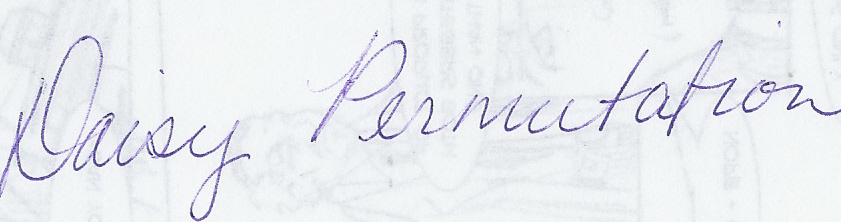 Daisy Permutation